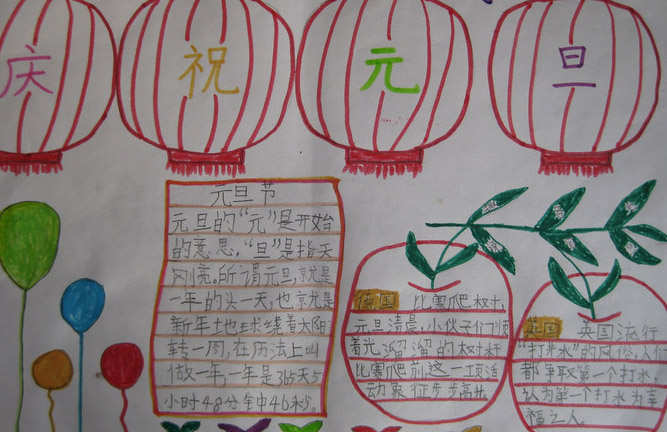 庆祝元旦
元旦节
元旦的“元”是开始
的意思，“旦”是指天
刚境。所谓元旦，就是
一年的头一天，也就是
新年地球绕着太阳
转一周，在历法上叫
做一年，一年是365天5
小时48分钟46秒。
德国 比赛爬树，
元旦清晨，小伙子们顺
着光溜溜的树杆
比赛爬前，这一项活
动象征步步高升。
英国 英国流行
“打井水”的风俗，人们
都争取第一个打水，
认为第一个打水为幸
福之人。